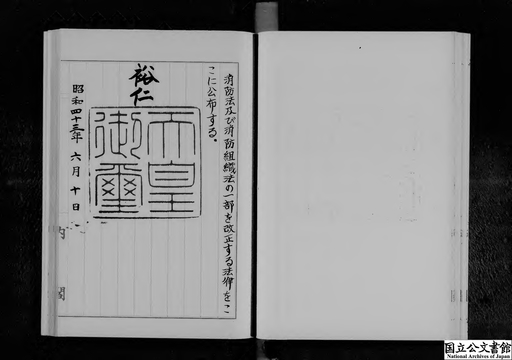 消防法及び消防組織法の一部を改正する法律をこ
こに公布する。
裕仁
天皇
御璽
昭和四十三年六月十日
内閣
国立公文書館
National Archives of Japan